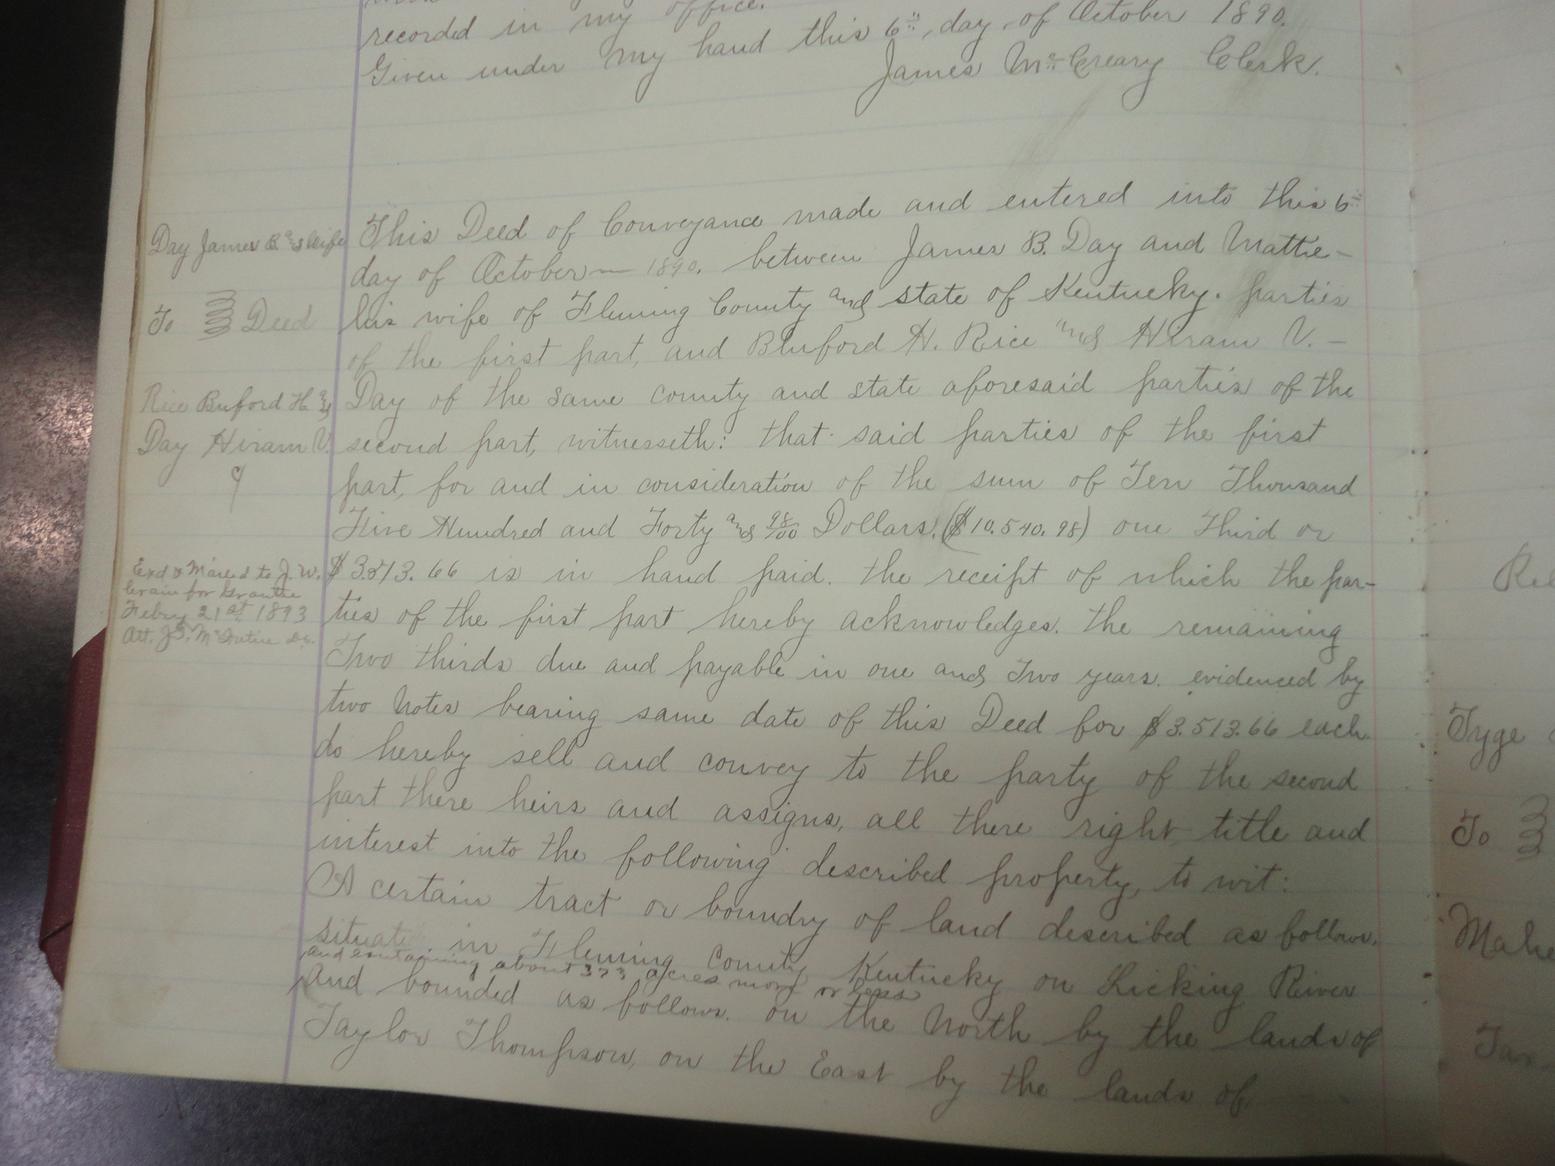 recorded in my office.
Given under my hand this 6th day of October 1890.
James McCreary Clerk.
Day James B &s Wife
To Deed
Rice Buford H &
Day Hiram V.
Exd & Mailed to J. W.
Crain for Grantee
Febry 21st 1893
Att. J.S. McIntire Dc.
This Deed of Conveyance made and entered into this 6th
day of October — 1890. between James B. Day and Mattie —
his wife of Fleming County and state of Kentucky. parties
of the first part, and Bluford H. Rice and Hiram V. —
Day of the same county and state aforesaid parties of the
second part, witnesseth: that said parties of the first
part, for and in consideration of the sum of Ten Thousand
Five Hundred and Forty and 98/100 Dollars. ($10.540.98) one Third or
$3.513.66 is in hand paid. the receipt of which the par-
ties of the first part hereby acknowledges. the remaining
Two thirds due and payable in one and Two years. evidenced by
two Notes bearing same date of this Deed for $3.513.66 each
do hereby sell and convey to the party of the second
part there heirs and assigns, all there right title and
interest into the following described property, to wit:
A certain tract or boundry of land described as follows.
situate in Fleming County Kentucky on Licking River
and containing about 373 acres more or less
and bounded as follows. on the North by the lands of
Taylor Thompson, on the East by the lands of
Tyge
To
Mahe